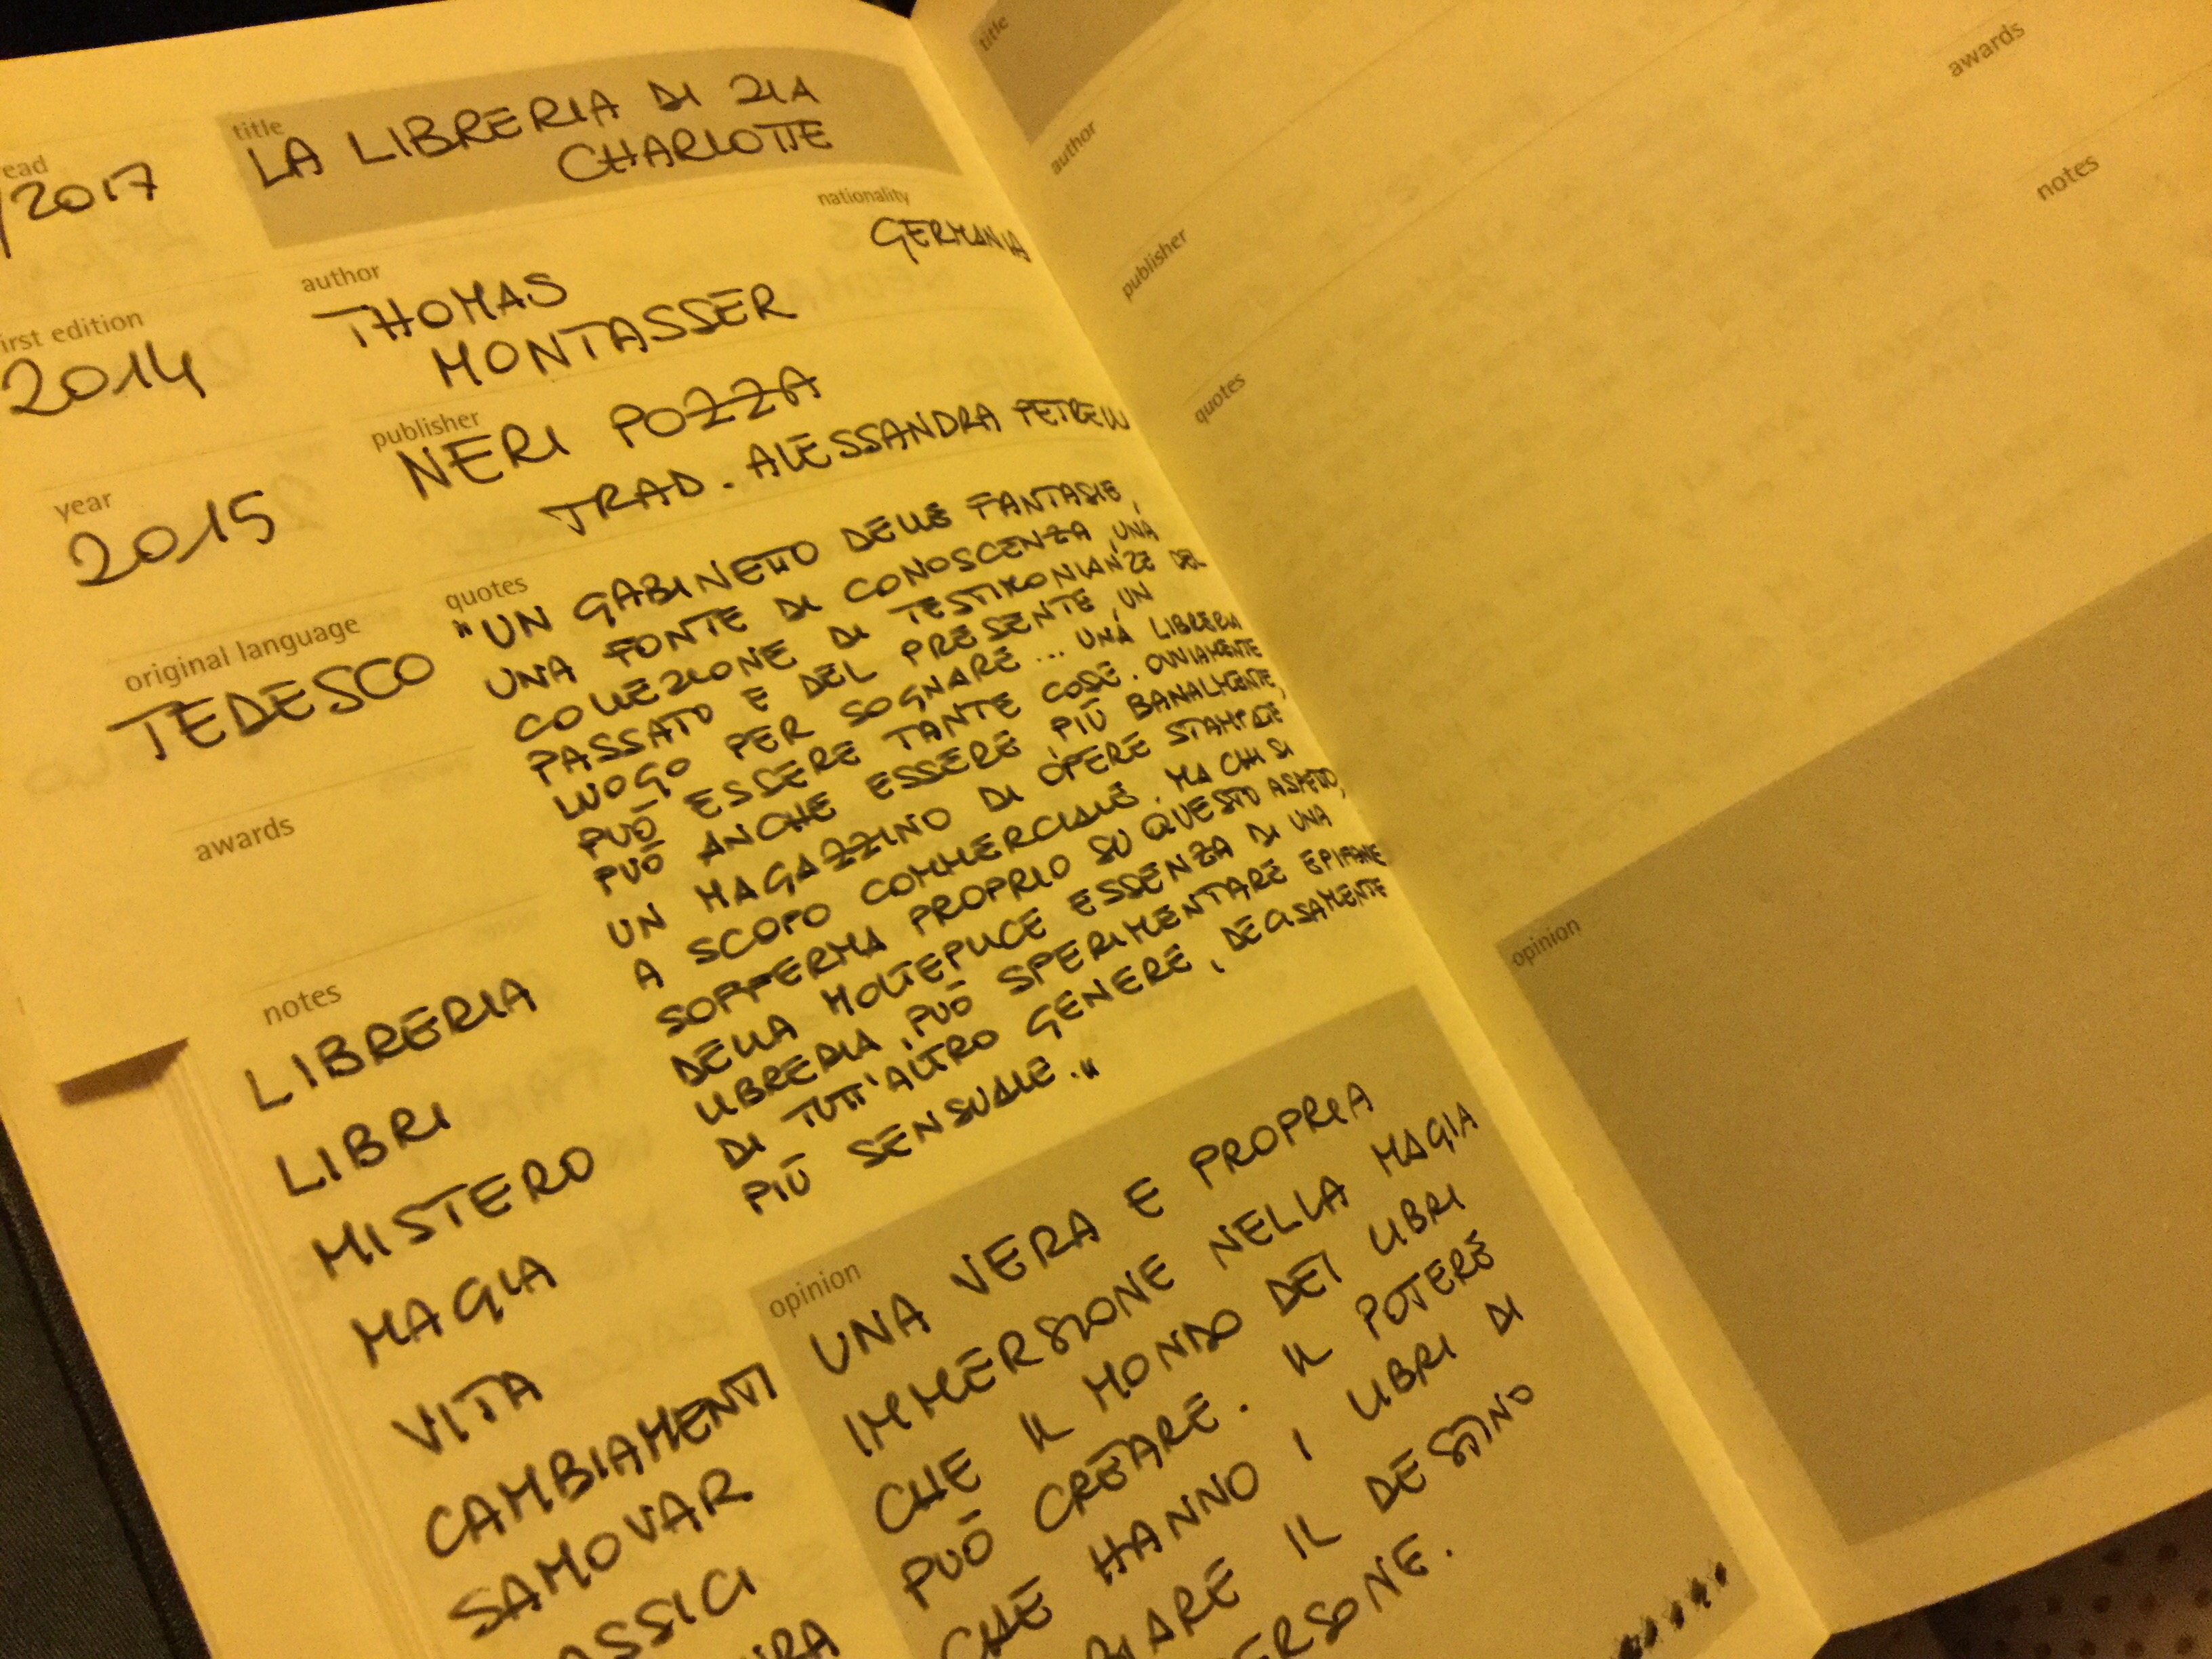 title
LA LIBRERIA DI ZIA
CHARLOTTE
/2017
nationality
GERMANIA
author
THOMAS
MONTASSER
first edition
2014
publisher
NERI POZZA
TRAD. ALESSANDRA PETRELLI
year
2015
original language
TEDESCO
awards
notes
LIBRERIA
LIBRI
MISTERO
MAGIA
VITA
CAMBIAMENTI
SAMOVAR
ASSICI
quotes
"UN GABINETTO DELLE FANTASIE,
UNA FONTE DI CONOSCENZA, UNA
COLLEZIONE DI TESTIMONIANZE DEL
PASSATO E DEL PRESENTE, UN
LUOGO PER SOGNARE... UNA LIBRERIA
PUÒ ESSERE TANTE COSE. OVVIAMENTE
PUÒ ANCHE ESSERE, PIÙ BANALMENTE,
UN MAGAZZINO DI OPERE STAMPATE
A SCOPO COMMERCIALE. MA CHI SI
SOFFERMA PROPRIO SU QUESTO ASPETTO,
DELLA MOLTEPLICE ESSENZA DI UNA
LIBRERIA, PUÒ SPERIMENTARE EPIFANIE
DI TUTT'ALTRO GENERE, DECISAMENTE
PIÙ SENSUALE."
opinion
UNA VERA E PROPRIA
IMMERSIONE NELLA MAGIA
CHE IL MONDO DEI LIBRI
PUÒ CREARE. IL POTERE
CHE HANNO I LIBRI DI
IARE IL DESTINO
ERSONE.
title
author
publisher
quotes
awards
notes
opinion